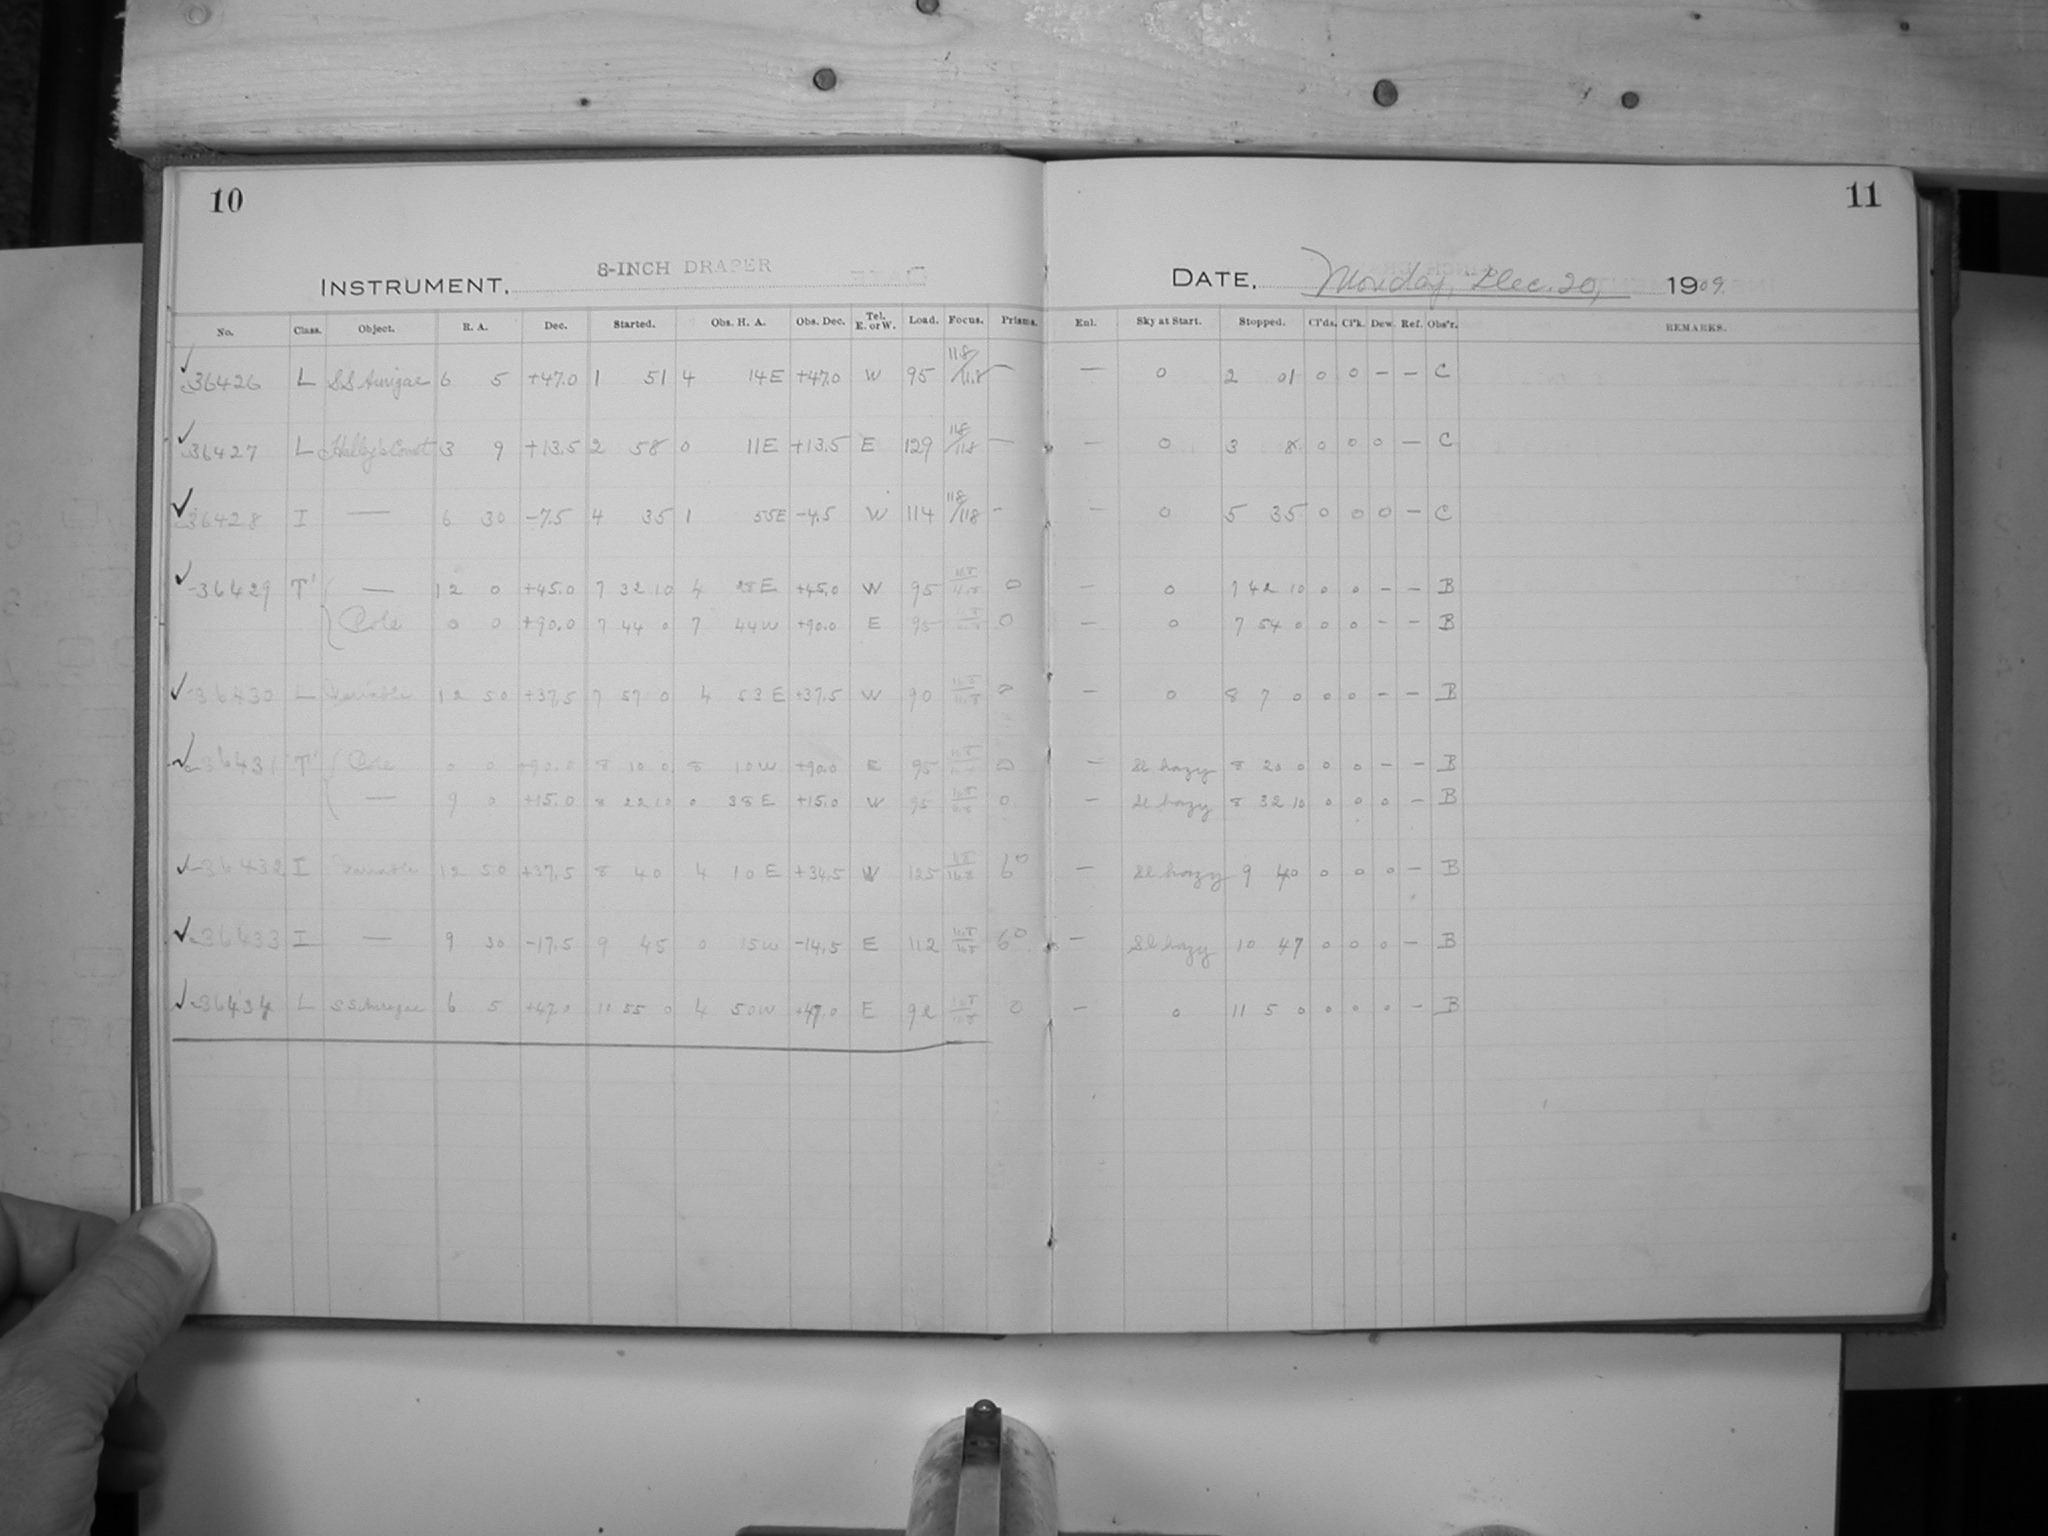 10
11
INSTRUMENT, 8-INCH DRAPER
DATE, Monday, Dec. 20, 1909.
No. Class. Object. R. A. Dec. Started. Obs. H. A. Obs. Dec. Tel. E. or W. Load. Focus. Prisms. Enl. Sky at Start. Stopped. Cl'ds. Cl'k. Dew. Ref. Obs'r. REMARKS.
36426 L SS Aurigae 6 5 +47.0 1 51 4 14E +47.0 W 95 118/118 — — 0 2 01 0 0 — — C
36427 L Halley's Comet 3 9 +13.5 2 58 0 11E +13.5 E 129 118/118 — — 0 3 8 0 0 0 — C
36428 I — 6 30 -7.5 4 35 1 55E -4.5 W 114 118/118 - — 0 5 35 0 0 0 — C
36429 T' — 12 0 +45.0 7 32 10 4 28E +45.0 W 95 0 — 0 7 42 10 0 0 — — B
Pole 0 0 +90.0 7 44 0 7 44W +90.0 E 95 0 — 0 7 54 0 0 0 — — B
36430 L Variable 12 50 +37.5 7 57 0 4 53E +37.5 W 90 0 — 0 8 7 0 0 0 — — B
36431 T' Pole 0 0 +90.0 8 10 0 8 10W +90.0 E 95 0 — Sl hazy 8 20 0 0 0 — — B
— 9 0 +15.0 8 22 10 0 38E +15.0 W 95 0 — Sl hazy 8 32 10 0 0 0 — B
36432 I Variable 12 50 +37.5 8 40 4 10E +34.5 W 125 6° — Sl hazy 9 40 0 0 0 — B
36433 I — 9 30 -17.5 9 45 0 15W -14.5 E 112 6° — Sl hazy 10 47 0 0 0 — B
36434 L SS Aurigae 6 5 +47.0 55 0 4 50W +47.0 E 92 0 — 0 11 5 0 0 0 0 — B